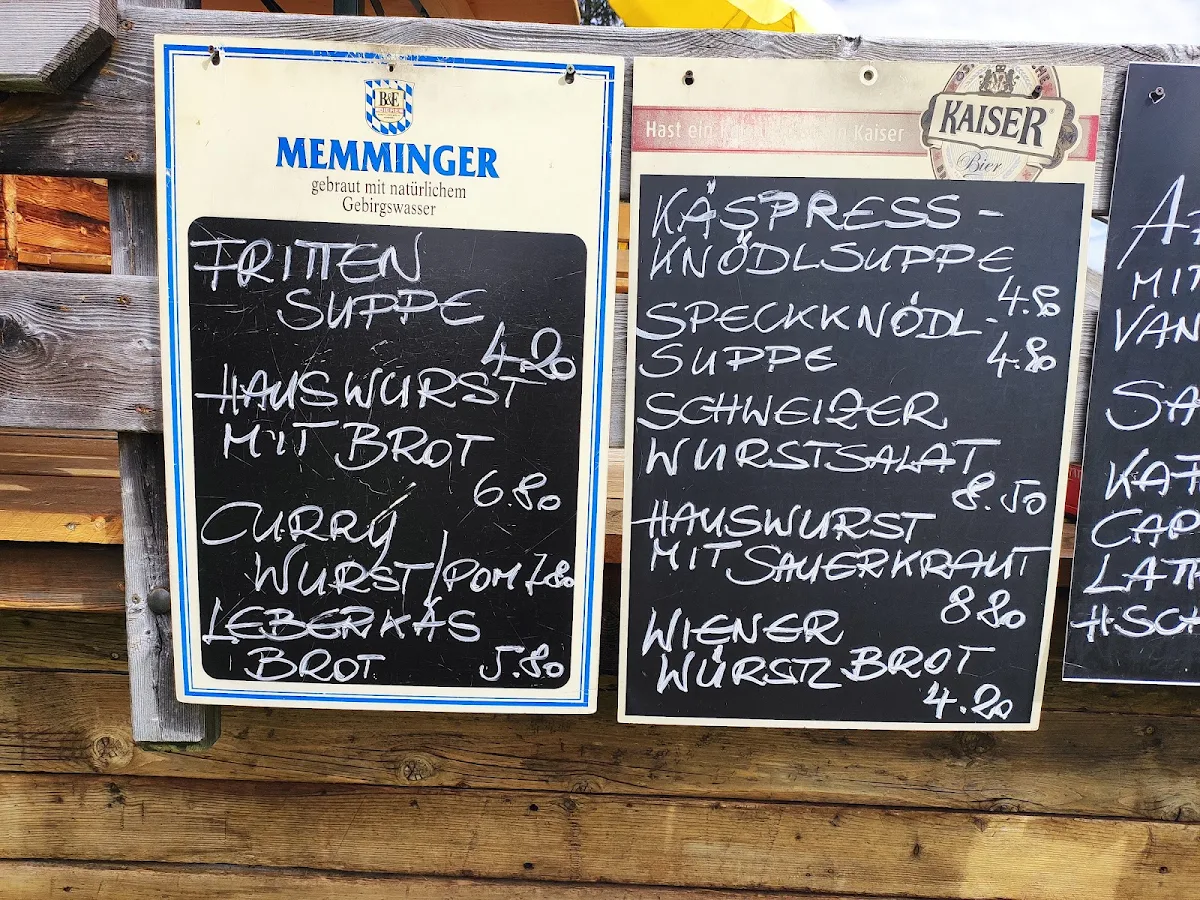 B&E
MEMMINGER
gebraut mit natürlichem
Gebirgswasser
FRITTEN
SUPPE
4.20
HAUSWURST
MIT BROT
6.80
CURRY
WURST/POM 7.80
LEBERKÄS
BROT 5.80
Hast ein Kaiser
KAISER
Bier
KÄSPRESS-
KNÖDLSUPPE
4.80
SPECKKNÖDL-
SUPPE 4.80
SCHWEIZER
WURSTSALAT
8.50
HAUSWURST
MIT SAUERKRAUT
8 80
WIENER
WÜRSTL BROT
4.20
MIT
VAN
SA
KAF
CAP
LATT
HSCH